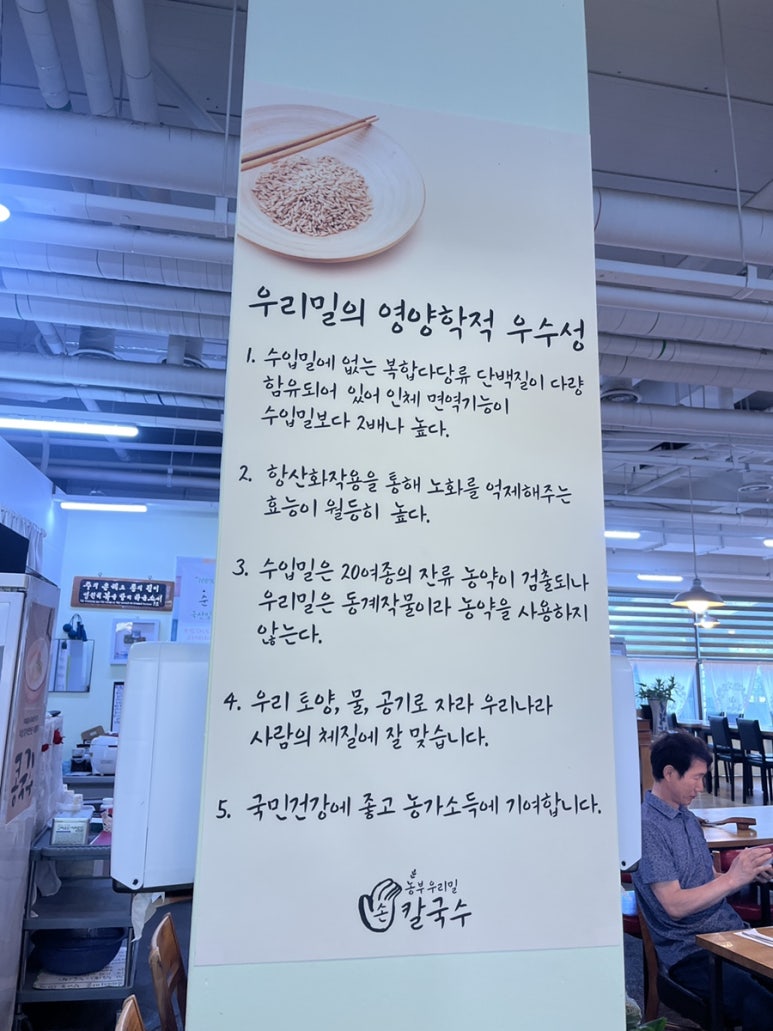 우리밀의 영양학적 우수성
1. 수입밀에 없는 복합다당류 단백질이 다량
함유되어 있어 인체 면역기능이
수입밀보다 2배나 높다.
2. 항산화작용을 통해 노화를 억제해주는
효능이 월등히 높다.
3. 수입밀은 20여종의 잔류 농약이 검출되나
우리밀은 동계작물이라 농약을 사용하지
않는다.
4. 우리 토양, 물, 공기로 자라 우리나라
사람의 체질에 잘 맞습니다.
5. 국민건강에 좋고 농가소득에 기여합니다.
농부우리밀
손
칼국수